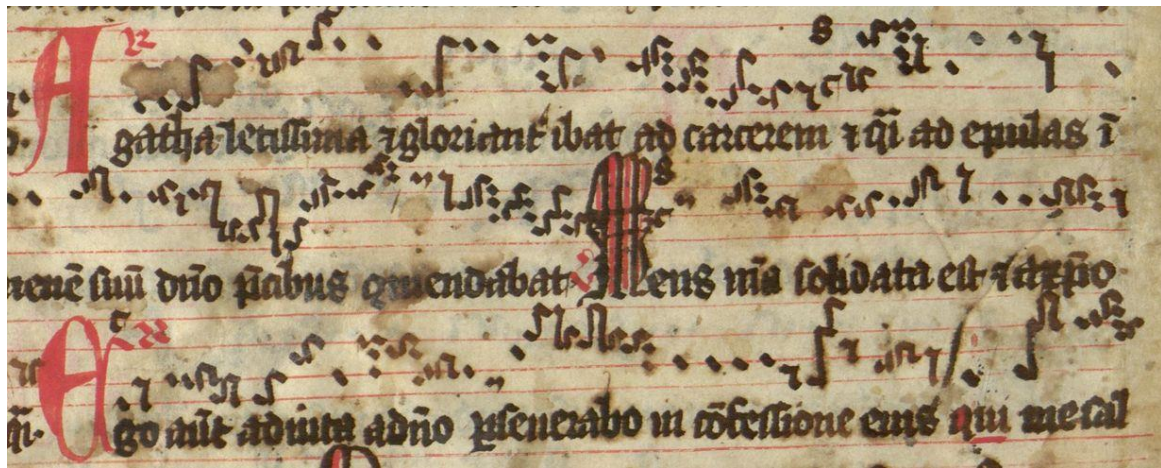 Agatha letissima ⁊ gloriant̄ ibat ad carcerem ⁊ q̄i ad epulas ī
suū dn̄o p̄cibus Mens m̄a solidata est ⁊ a xp̄o
Ego aūt adiuta a dn̄o ꝑseuerabo in cōfessione eius qui me sal